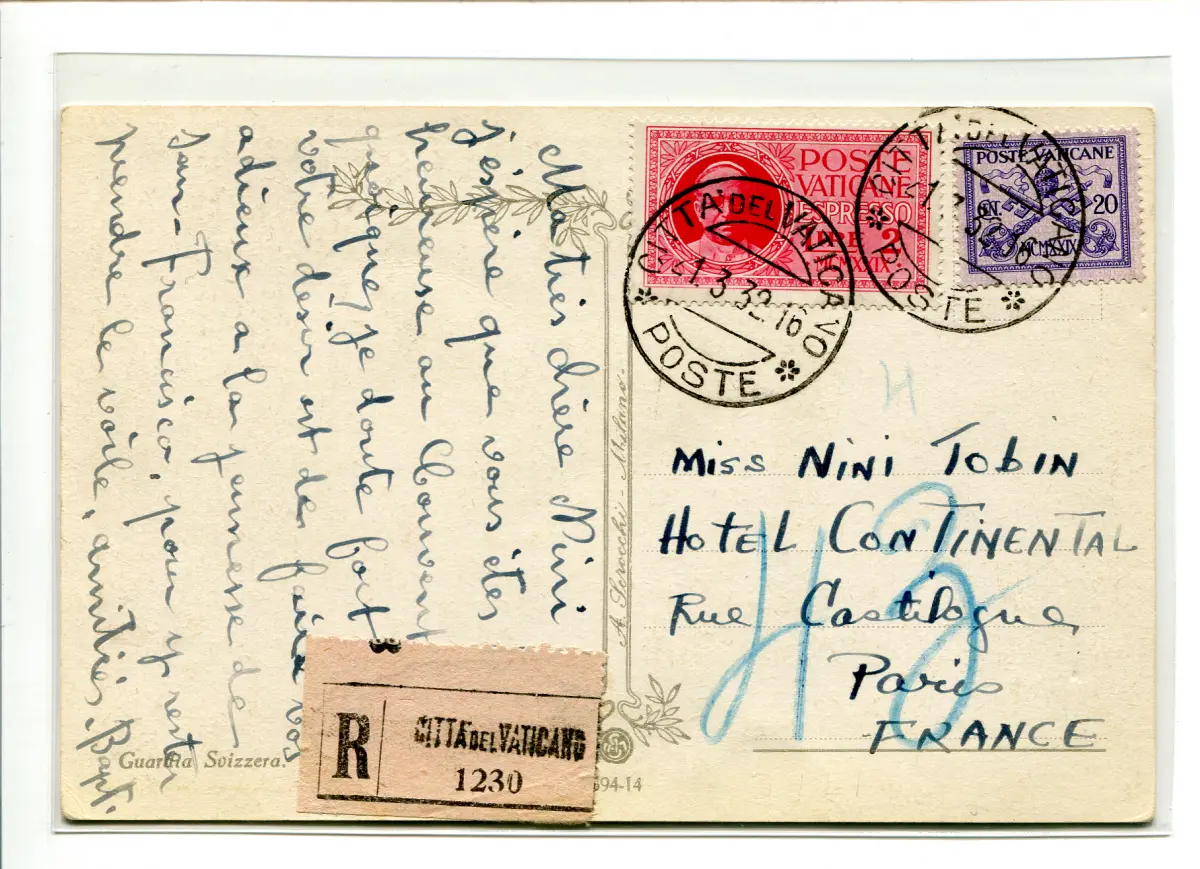 Ma très chère Nini
J'espère que vous êtes
heureuse au Couvent
quoique je doute fort
votre désir est de faire vos
adieux a la jeunesse de
San-Francisco, pour y rester
prendre le voile, amitiés, Bapt.
Guardia Svizzera.
A. Scrocchi - Milano -
694-14
R
CITTA DEL VATICANO
1230
POSTE
VATICANE
ESPRESSO
LIRE 2
POSTE VATICANE
CEN. 20
MCMXXIX
CITTA' DEL VATICANO
21.3.32.16
POSTE
CITTA' DEL VATICANO
POSTE
H
Miss NINI TOBIN
HOTEL CONTINENTAL
Rue Castilogne
Paris
FRANCE